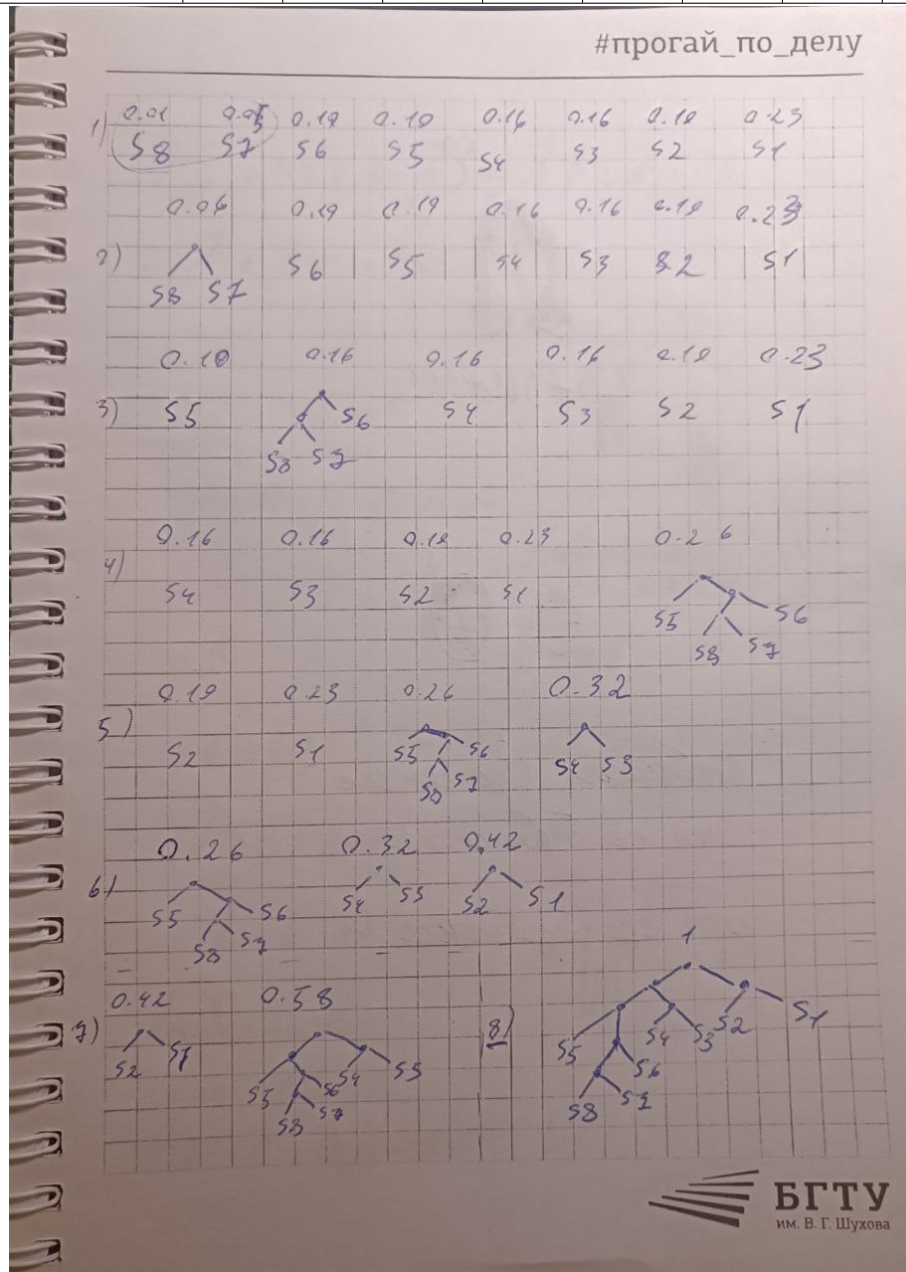 #прогай_по_делу
1) 0.01 0.19 0.10 0.16 0.16 0.19 0.23
S8 S7 S6 S5 S4 S3 S2 S1
0.06 0.19 0.19 0.16 0.16 0.19 0.23
2) S8 S7 S6 S5 S4 S3 S2 S1
0.10 0.16 0.16 0.16 0.19 0.23
3) S5 S8 S7 S6 S4 S3 S2 S1
0.16 0.16 0.19 0.23 0.26
4) S4 S3 S2 S1 S5 S8 S7 S6
0.19 0.23 0.26 0.32
5) S2 S1 S5 S8 S7 S6 S4 S3
0.26 0.32 0.42
6) S5 S8 S7 S6 S4 S3 S2 S1
0.42 0.58 1
7) S2 S1 S5 S8 S7 S6 S4 S3
8) S5 S8 S7 S6 S4 S3 S2 S1
БГТУ
им. В. Г. Шухова